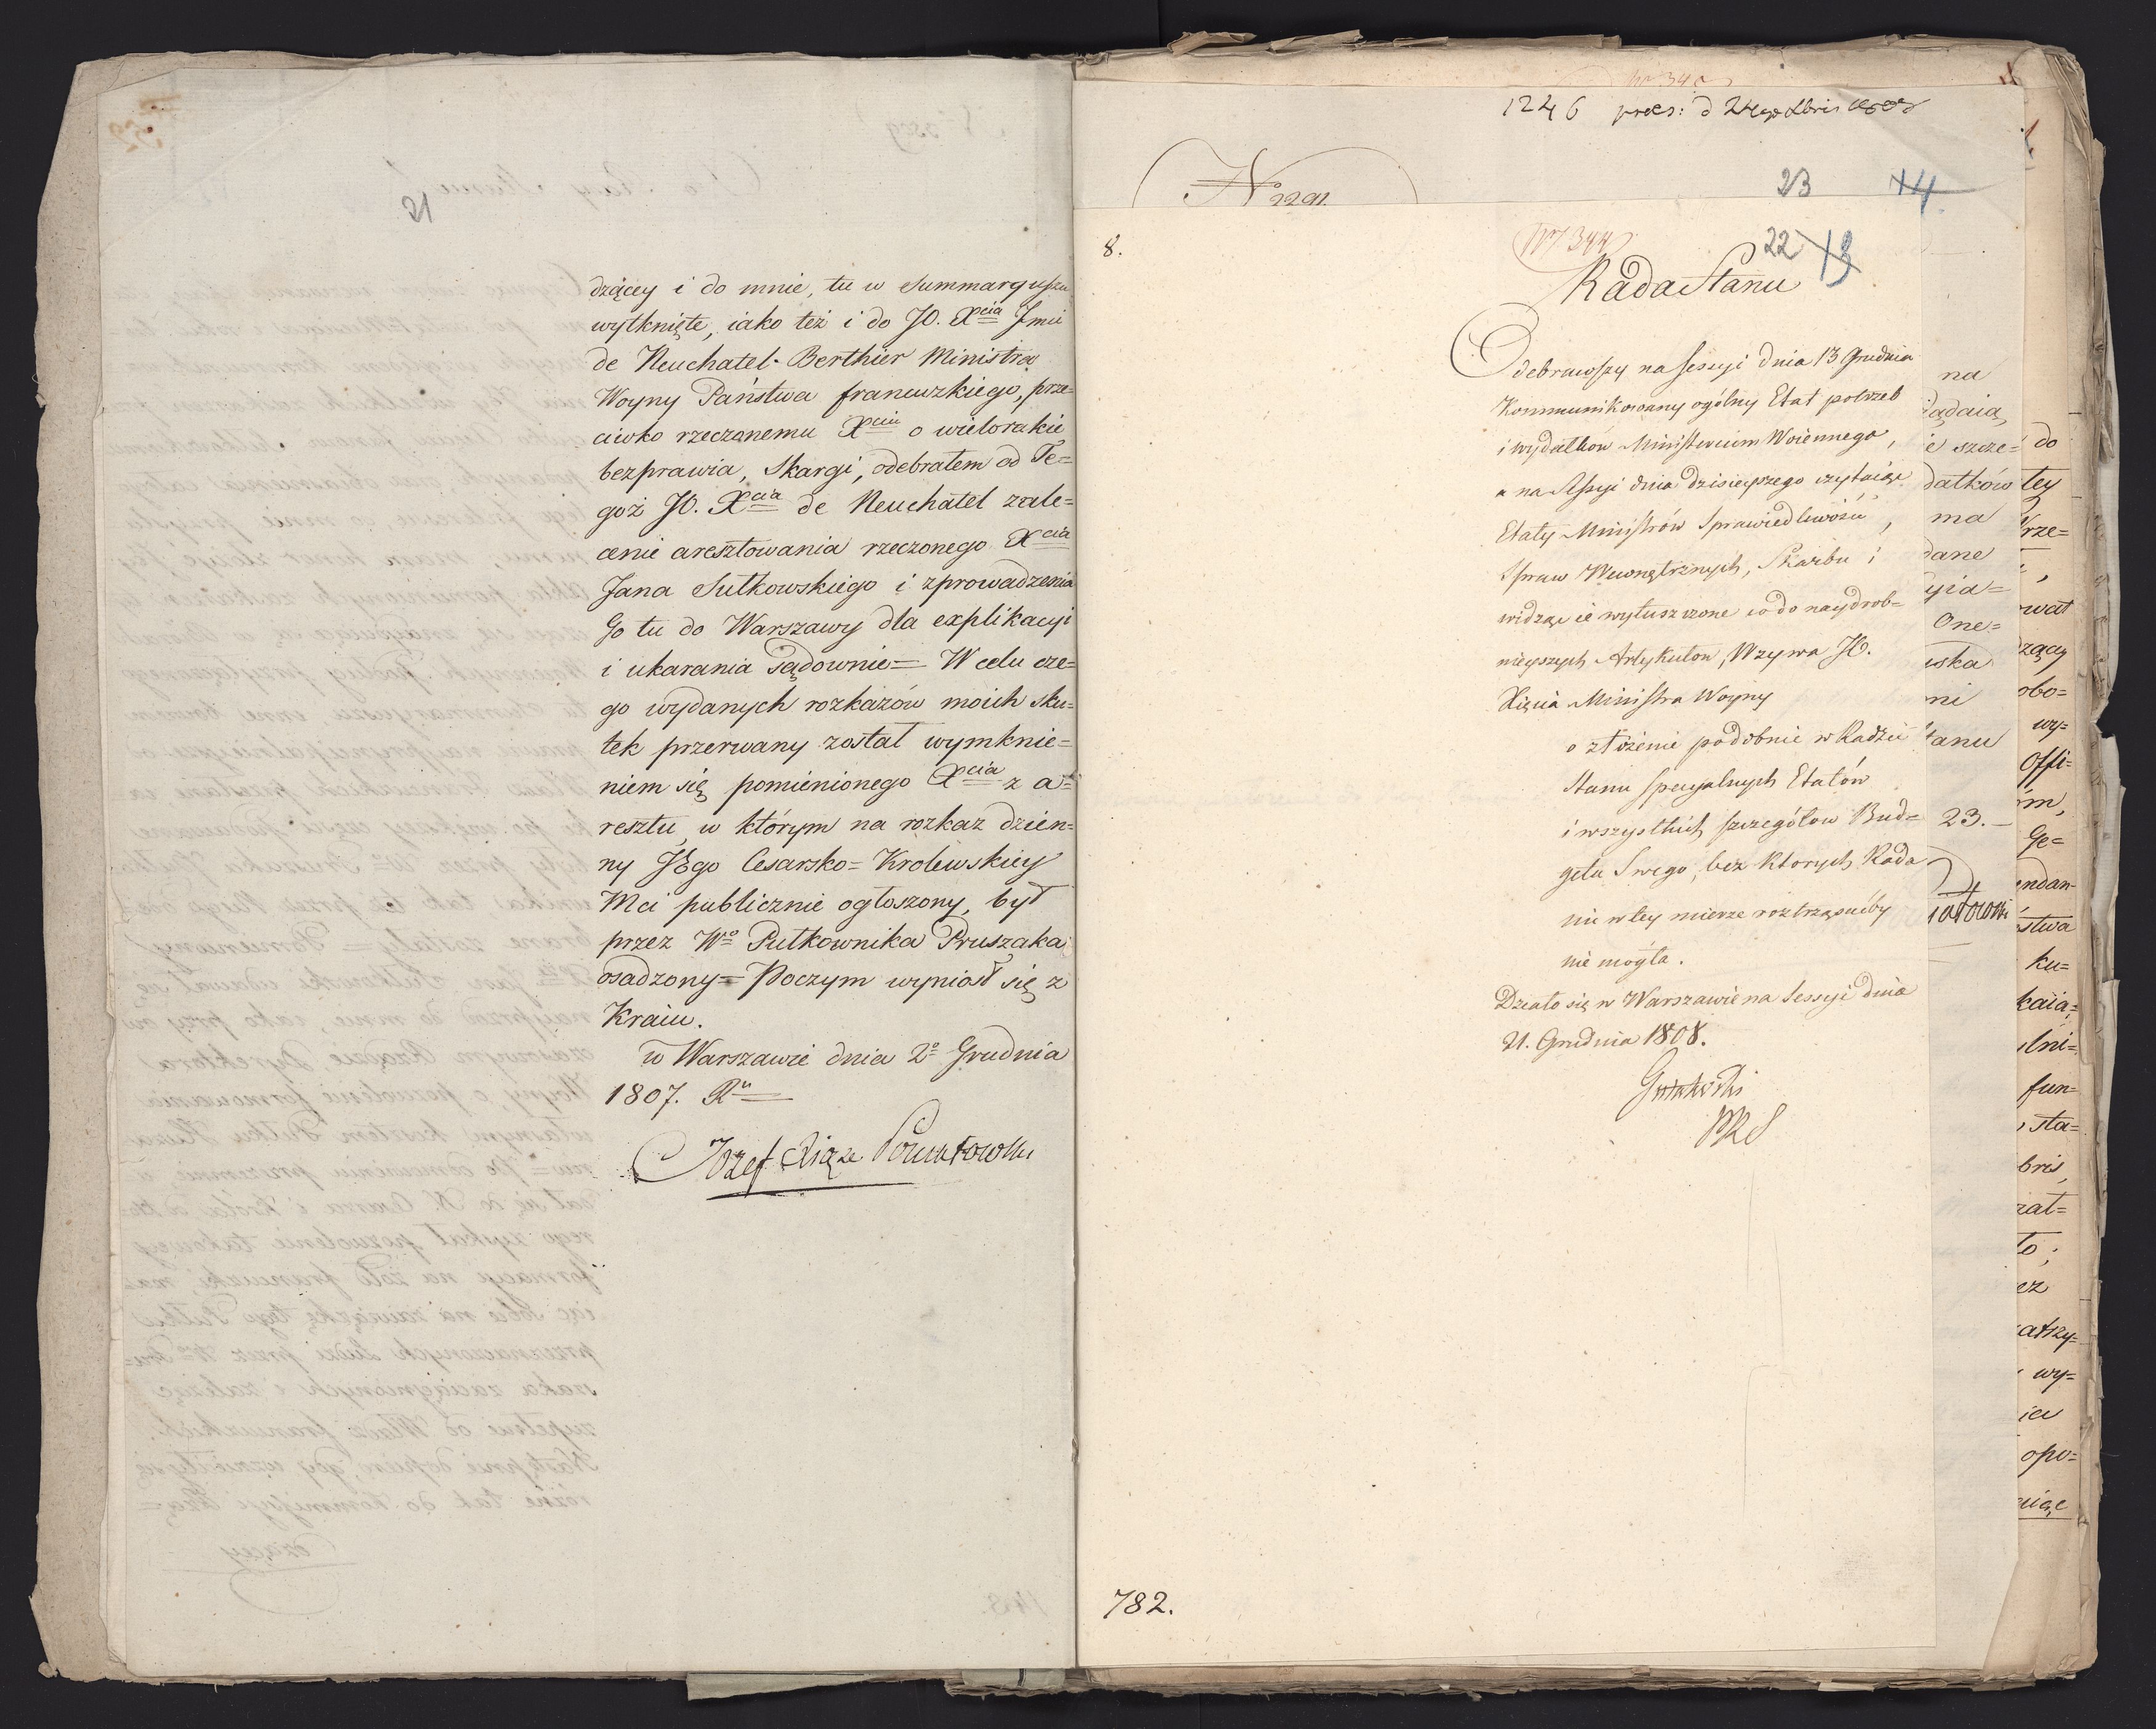 21
dzącey i do mnie, tu w Summaryuszu
wytknięte, iako też i do JO. Xcia Jmci
de Neuchatel Berthier Ministra
Woyny Państwa francuzkiego, prze=
ciwko rzeczonemu Xciu o wielorakie
bezprawia, Skargi, odebrałem od Te=
goż JO. Xcia de Neuchatel zale=
cenie aresztowania rzeczonego Xcia
Jana Sułkowskiego i zprowadzenia
Go tu do Warszawy dla explikacyi
i ukarania sądownie= W celu cze=
go wydanych rozkazów moich sku=
tek przerwany został wymknie=
niem się pomienionego Xcia z a=
resztu, w którym na rozkaz dzien=
ny JEgo Cesarsko=Królewskiey
Mci publicznie ogłoszony, był
przez Wo Pułkownika Pruszaka
osadzony= Poczym wyniosł się z
Kraiu.
w Warszawie dnia 2o Grudnia
1807. Ru
Józef Xiąże Poniatowski
1246 praes: d 24
No 2291.
23 14
8.
No 344
22 13
Rada Stanu
Odebrawszy na Sessyi dnia 13 Grudnia
Kommunikowany ogólny Etat potrzeb
i wydatków Ministerium Woiennego,
a na Sessyi dnia dzisieyszego czytaiąc
Etaty Ministrów Sprawiedliwości,
Spraw Wewnętrznych, Skarbu i
widząc ie wyłuszczone co do naydrob=
nieyszych Artykułow, Wzywa JO.
Xięcia Ministra Woyny
o złożenie podobnie w Radzie
Stanu specyalnych Etatów
i wszystkich szczegółow Bud=
getu Swego, bez ktorych Rada
nie w tey mierze roztrząsnąćby
nie mogła.
Działo się w Warszawie na Sessyi dnia
21. Grudnia 1808.
Gutakowski
PRS
782.
na
żądaia
ie szcze=
datków
ma
dane
One=
ni
Stanu
23.
do
tey
Krze=
wał
dzący
obo=
wy=
Offi=
Ge=
endan=
stwa
ku=
kaią=
lni=
fun=
sta=
bris,
to;
ez
wy=
opo=